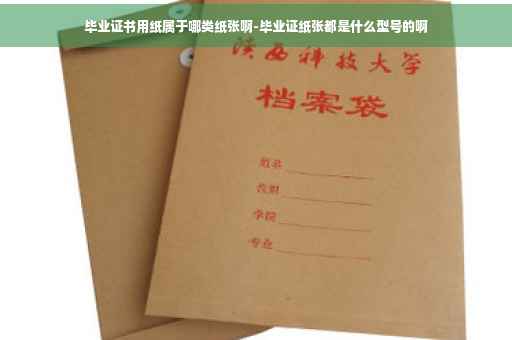 毕业证书用纸属于哪类纸张啊-毕业证纸张都是什么型号的啊
陕西科技大学
档案袋
姓名
学院
专业